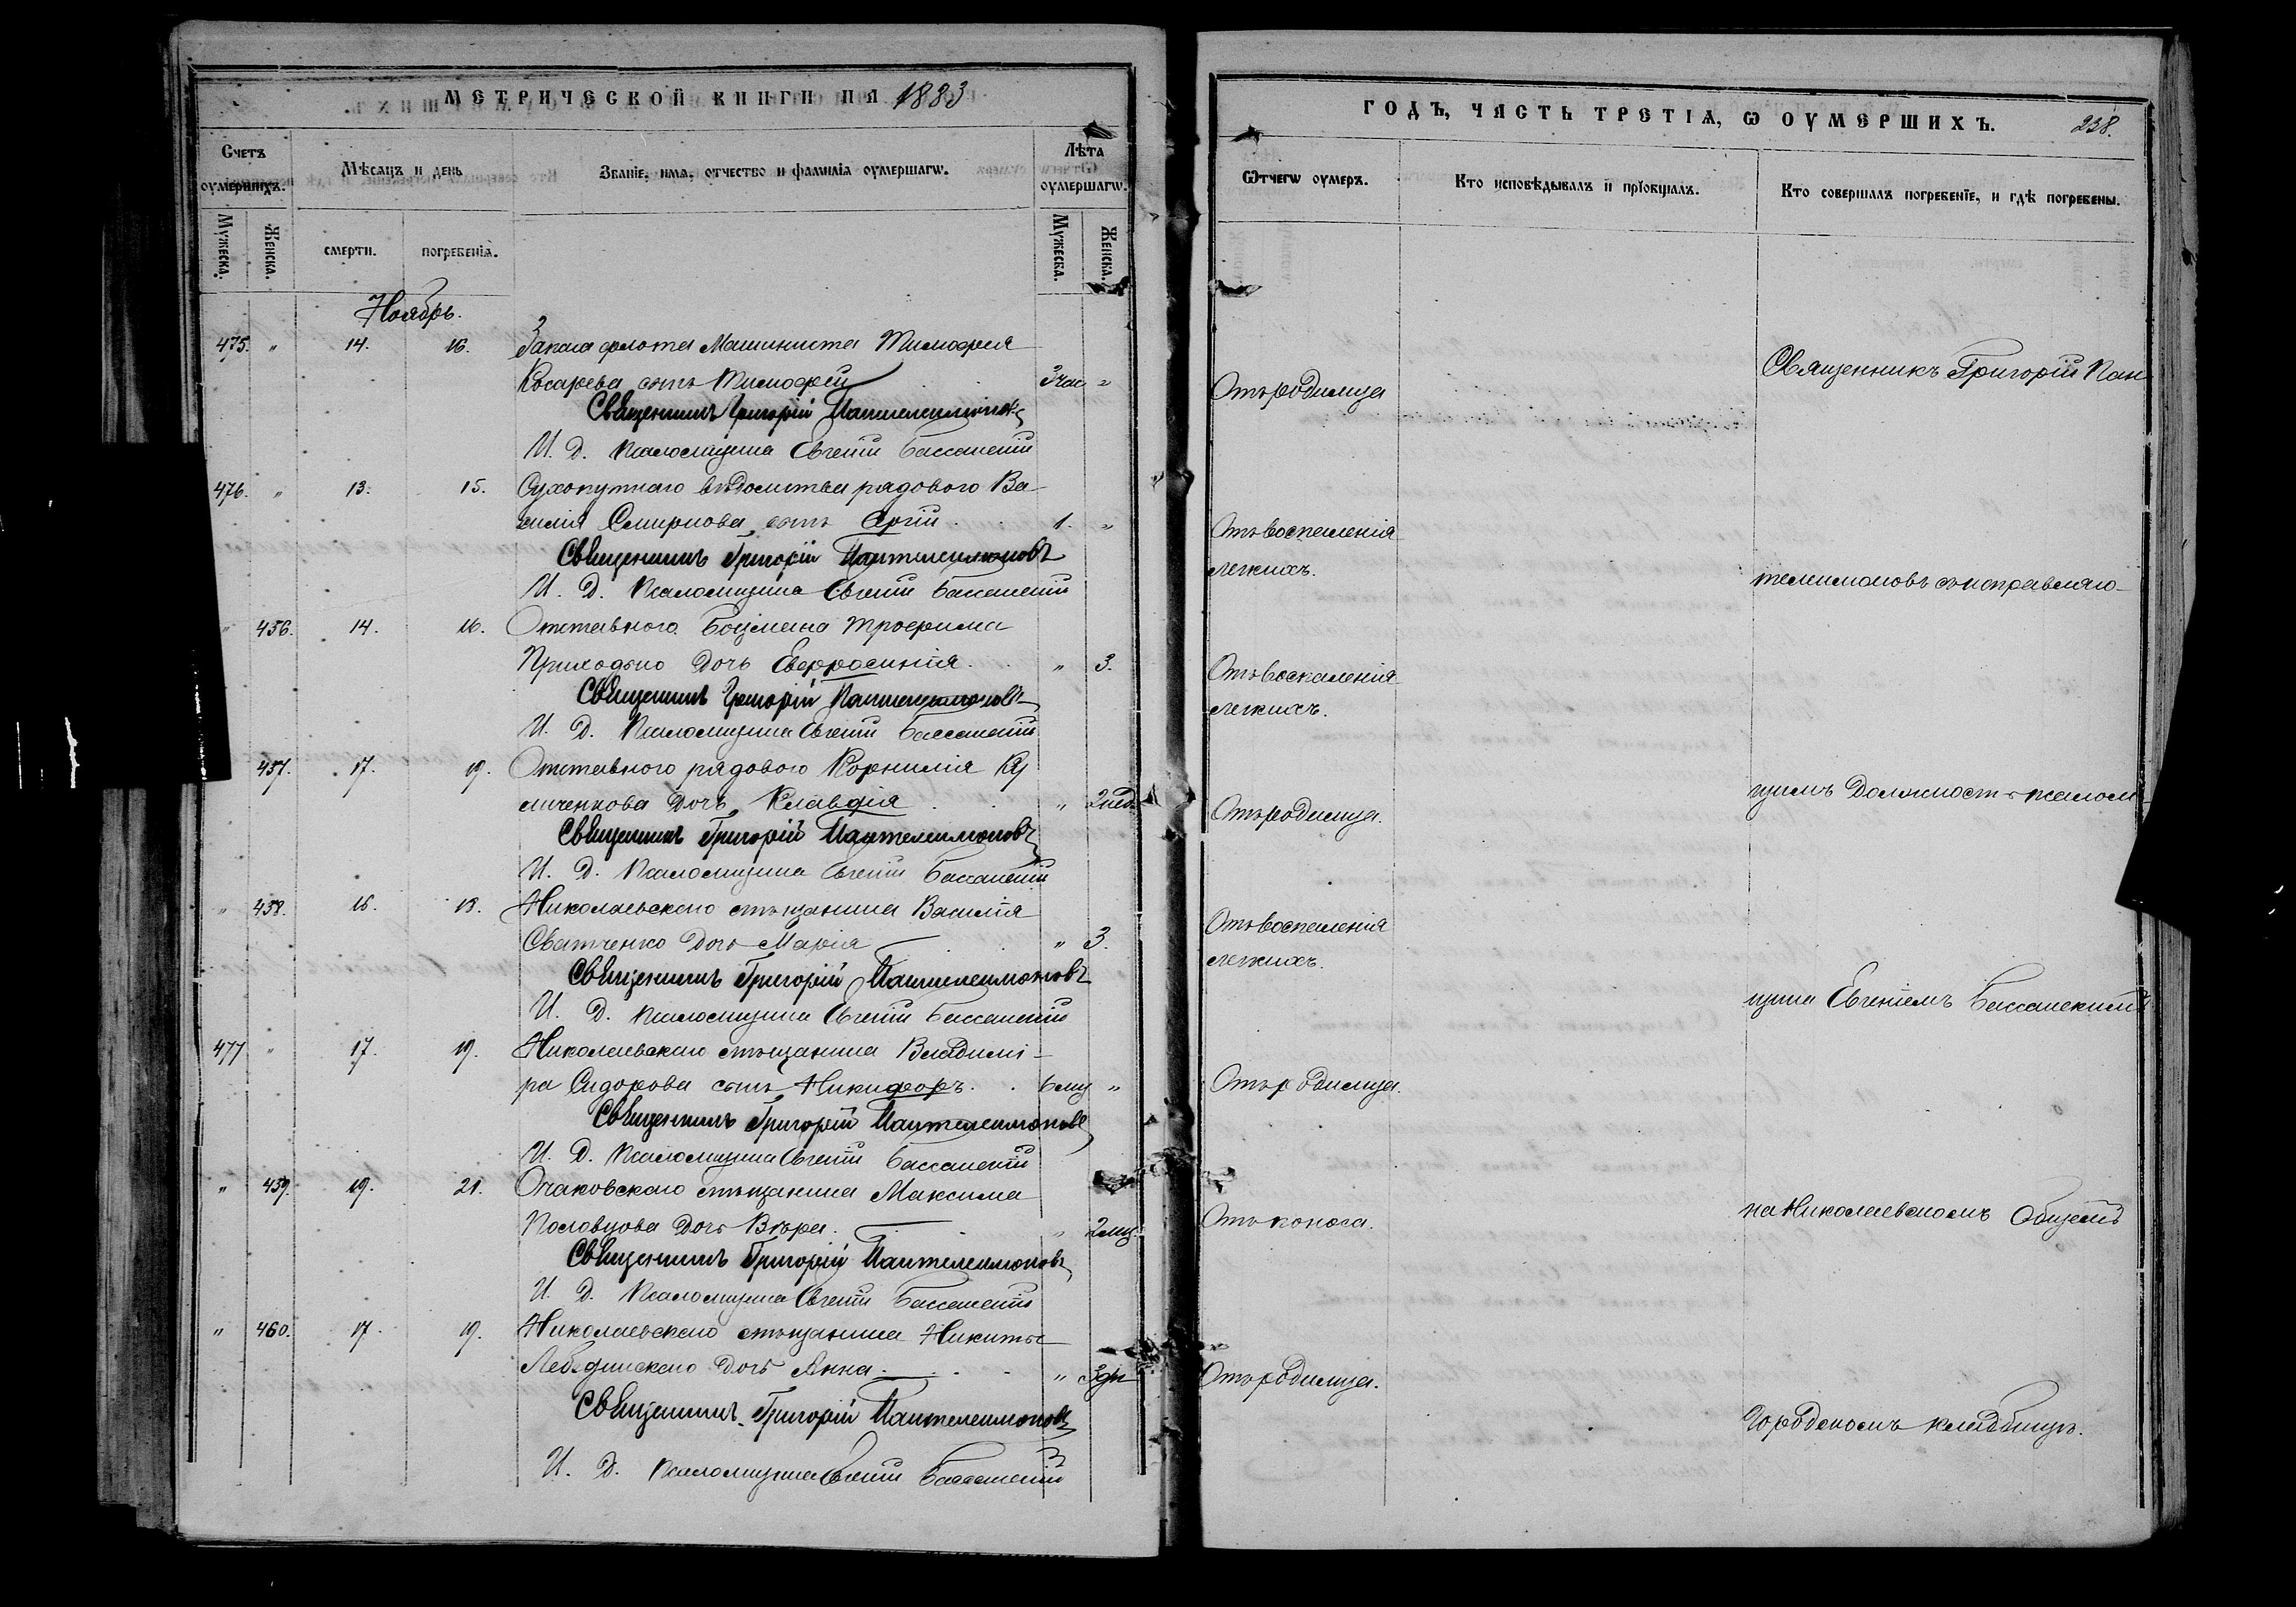 МЕТРИЧЕСКОЙ КНИГИ НА 1883
Счетъ оумершихъ.
Мѣсяцъ и день
Званіе, имя, отчество и фамилія оумершагѡ.
Лѣта оумершагѡ.
Мужеска.
Женска.
смерти.
погребенія.
Мужеска.
Женска.
Ноябрь.
475. " 14. 16. Запаса флота Машиниста Тимофея
Косарева сынъ Тимофей 3 час "
Священникъ Григорій Пантелеимоновъ
И. Д. Псаломщика Евгеній Бассанскій
476. " 13. 15. Сухопутнаго вѣдомства рядового Ва-
силія Смирнова сынъ Сергій 1. "
Священникъ Григорій Пантелеимоновъ
И. Д. Псаломщика Евгеній Бассанскій
" 456. 14. 16. Отставного Боцмана Трофима
Приходько дочь Евфросинія " 3.
Священникъ Григорій Пантелеимоновъ
И. Д. Псаломщика Евгеній Бассанскій
457. 17. 19. Отставного рядового Корнилія
дочь Клавдія " 2 нед.
Священникъ Григорій Пантелеимоновъ
И. Д. Псаломщика Евгеній Бассанскій
" 458. 16. 18. Николаевскаго мѣщанина Василія
Сватченко дочь Марія " 3.
Священникъ Григорій Пантелеимоновъ
И. Д. Псаломщика Евгеній Бассанскій
477 " 17. 19. Николаевскаго мѣщанина Владимі-
ра Сидорова сынъ Никифоръ. 6 мц "
Священникъ Григорій Пантелеимоновъ
И. Д. Псаломщика Евгеній Бассанскій
" 459. 19. 21. Очаковскаго мѣщанина Максима
Половцова дочь Вѣра. " 2 мц.
Священникъ Григорій Пантелеимоновъ
И. Д. Псаломщика Евгеній Бассанскій
" 460. 17. 19. Николаевскаго мѣщанина Никиты
Лебединскаго дочь Анна. " 3 дн
Священникъ Григорій Пантелеимоновъ
И. Д. Псаломщика Евгеній Бассанскій
ГОДЪ, ЧАСТЬ ТРЕТІЯ, Ѡ ОУМЕРШИХЪ. 238.
Ѿчегѡ оумеръ.
Кто исповѣдывалъ и пріобщалъ.
Кто совершалъ погребеніе, и гдѣ погребены.
Отъ родимца
Отъ воспаленія
легкихъ.
Отъ воспаленія
легкихъ.
Отъ родимца.
Отъ воспаленія
легкихъ.
Отъ родимца.
Отъ поноса.
Отъ родимца.
Священникъ Григорій Пан-
телеимоновъ съ исправляю-
щимъ должность псалом-
щика Евгеніемъ Бассанскимъ
на Николаевскомъ Общемъ
Городскомъ кладбищѣ.